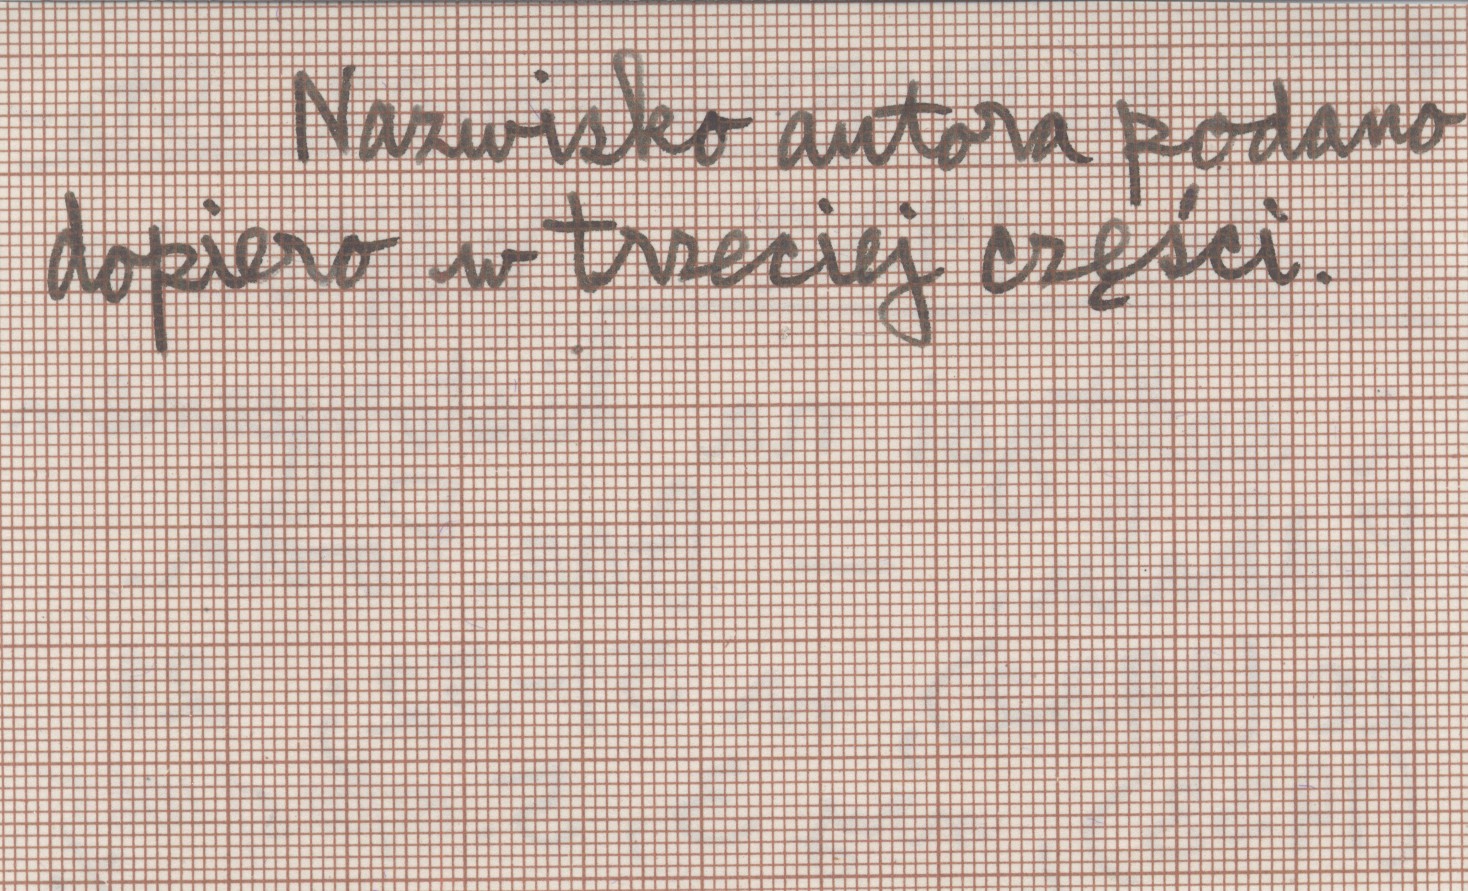 Nazwisko autora podano
dopiero w trzeciej części.